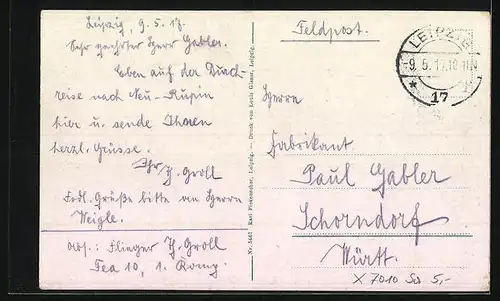 Leipzig, 9.5.17.
Sehr geehrter Herr Gabler.
Eben auf der Durch-
reise nach Neu-Rupin
hier u. sende Ihnen
herzl. Grüsse.
Ihr H. Groll
Frdl. Grüße bitte an Herrn
Weigle.
Abs.: Flieger H. Groll
Fea 10, 1. Komp.
Karl Finkenrath, Leipzig. – Druck von Louis Glaser, Leipzig.
Feldpost.
LEIPZIG
9.5.17.
* 17
Herrn
Fabrikant
Paul Gabler
Schorndorf
Württ.
X 7010 5,-